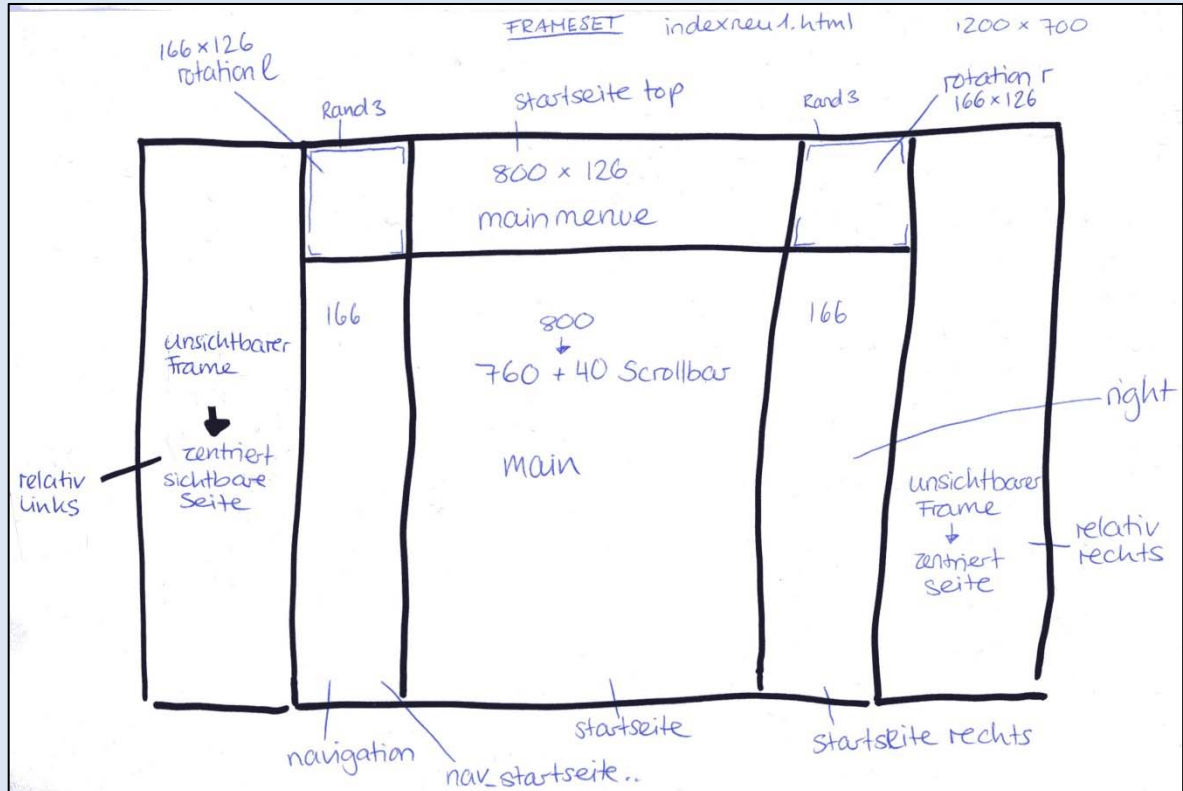 FRAMESET indexneu1.html 1200 x 700
166 x 126
rotation l
Rand 3
startseite top
Rand 3
rotation r
166 x 126
800 x 126
mainmenue
166
800
↓
760 + 40 Scrollbar
166
unsichtbarer
Frame
↓
zentriert
sichtbare
Seite
relativ
Links
main
right
unsichtbarer
Frame
↓
zentriert
seite
relativ
rechts
navigation
nav_startseite..
startseite
startseite rechts